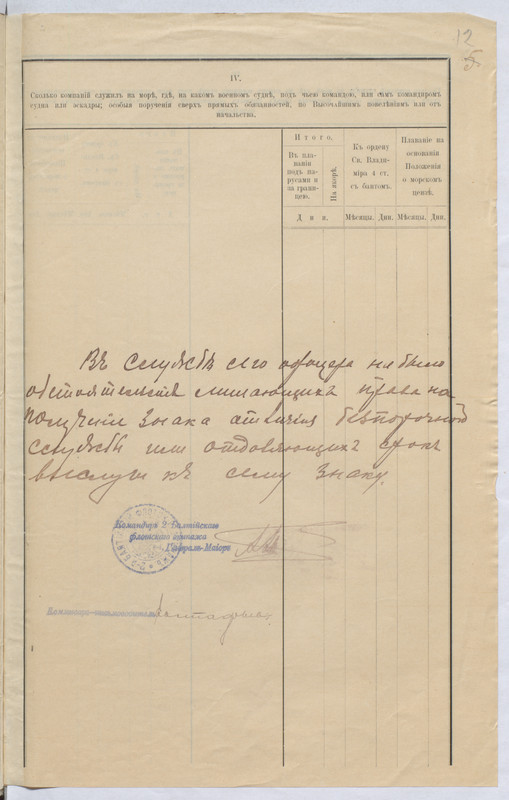 12
5
IV.
Сколько кампаній служилъ на морѣ, гдѣ, на какомъ военномъ суднѣ, подъ чьею командою, или самъ командиромъ
судна или эскадры; особыя порученія сверхъ прямыхъ обязанностей, по Высочайшимъ повелѣніямъ или отъ
начальства.
Итого.
Въ пла-
ваніи
подъ па-
русами и
за грани-
цею.
На якорѣ.
Къ ордену
Св. Влади-
міра 4 ст.
съ бантомъ.
Плаваніе на
основаніи
Положенія
о морскомъ
цензѣ.
Дня.
Мѣсяцы. Дни. Мѣсяцы. Дни.
Въ службѣ сего офицера не было
обстоятельствъ лишающихъ права на
полученіе знака отличія безпорочной
службы или отдаляющихъ срокъ
выслуги къ сему знаку.
Командиръ 2 Балтійскаго
флотскаго экипажа
Генералъ-Маіоръ